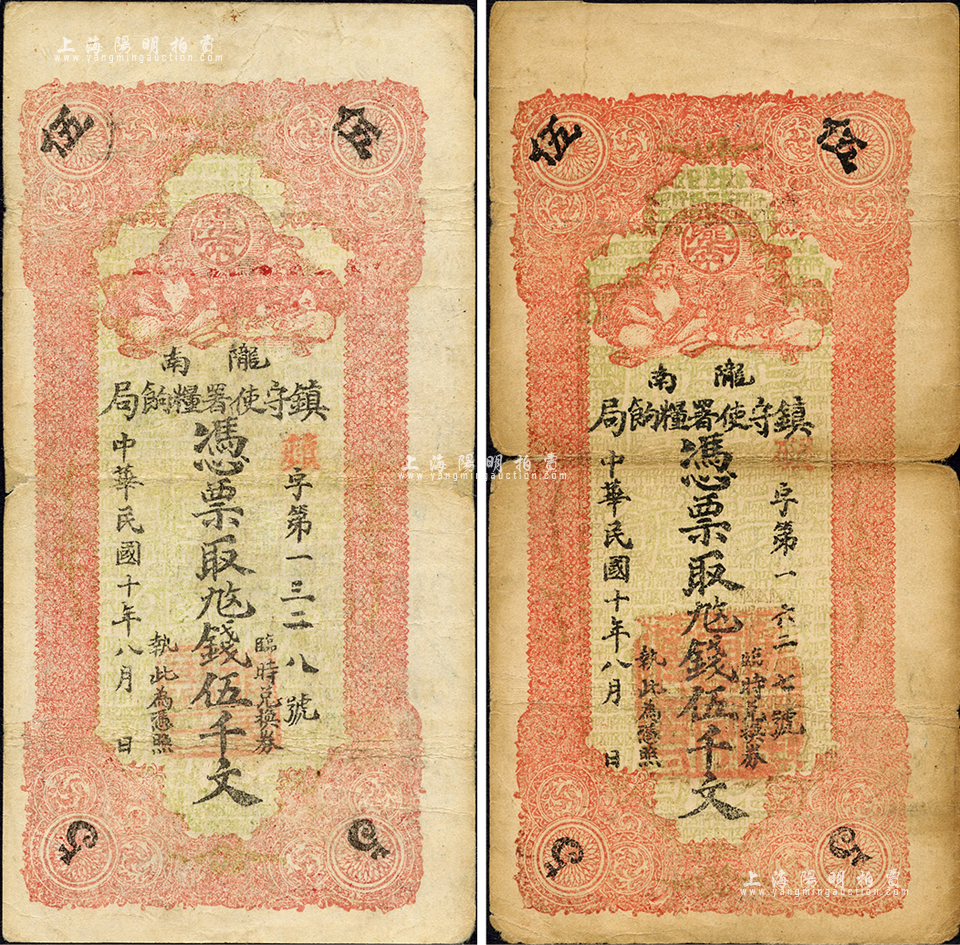 上海陽明拍賣
www.yangmingauction.com
伍 伍
隴南
鎮守使署糧餉局
字第一三二八號
臨時兌換券
憑票取尨錢伍千文
執此為憑照
中華民國十年八月 日
5 5
伍 伍
隴南
鎮守使署糧餉局
字第一六二七號
臨時兌換券
憑票取尨錢伍千文
執此為憑照
中華民國十年八月 日
5 5
上海陽明拍賣
www.yangmingauction.com
上海陽明拍賣
www.yangmingauction.com